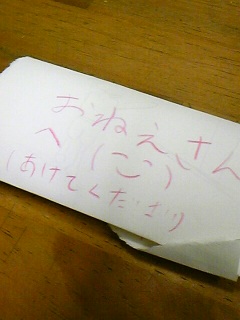 おねえさん
へ(こう)
(あけてください)